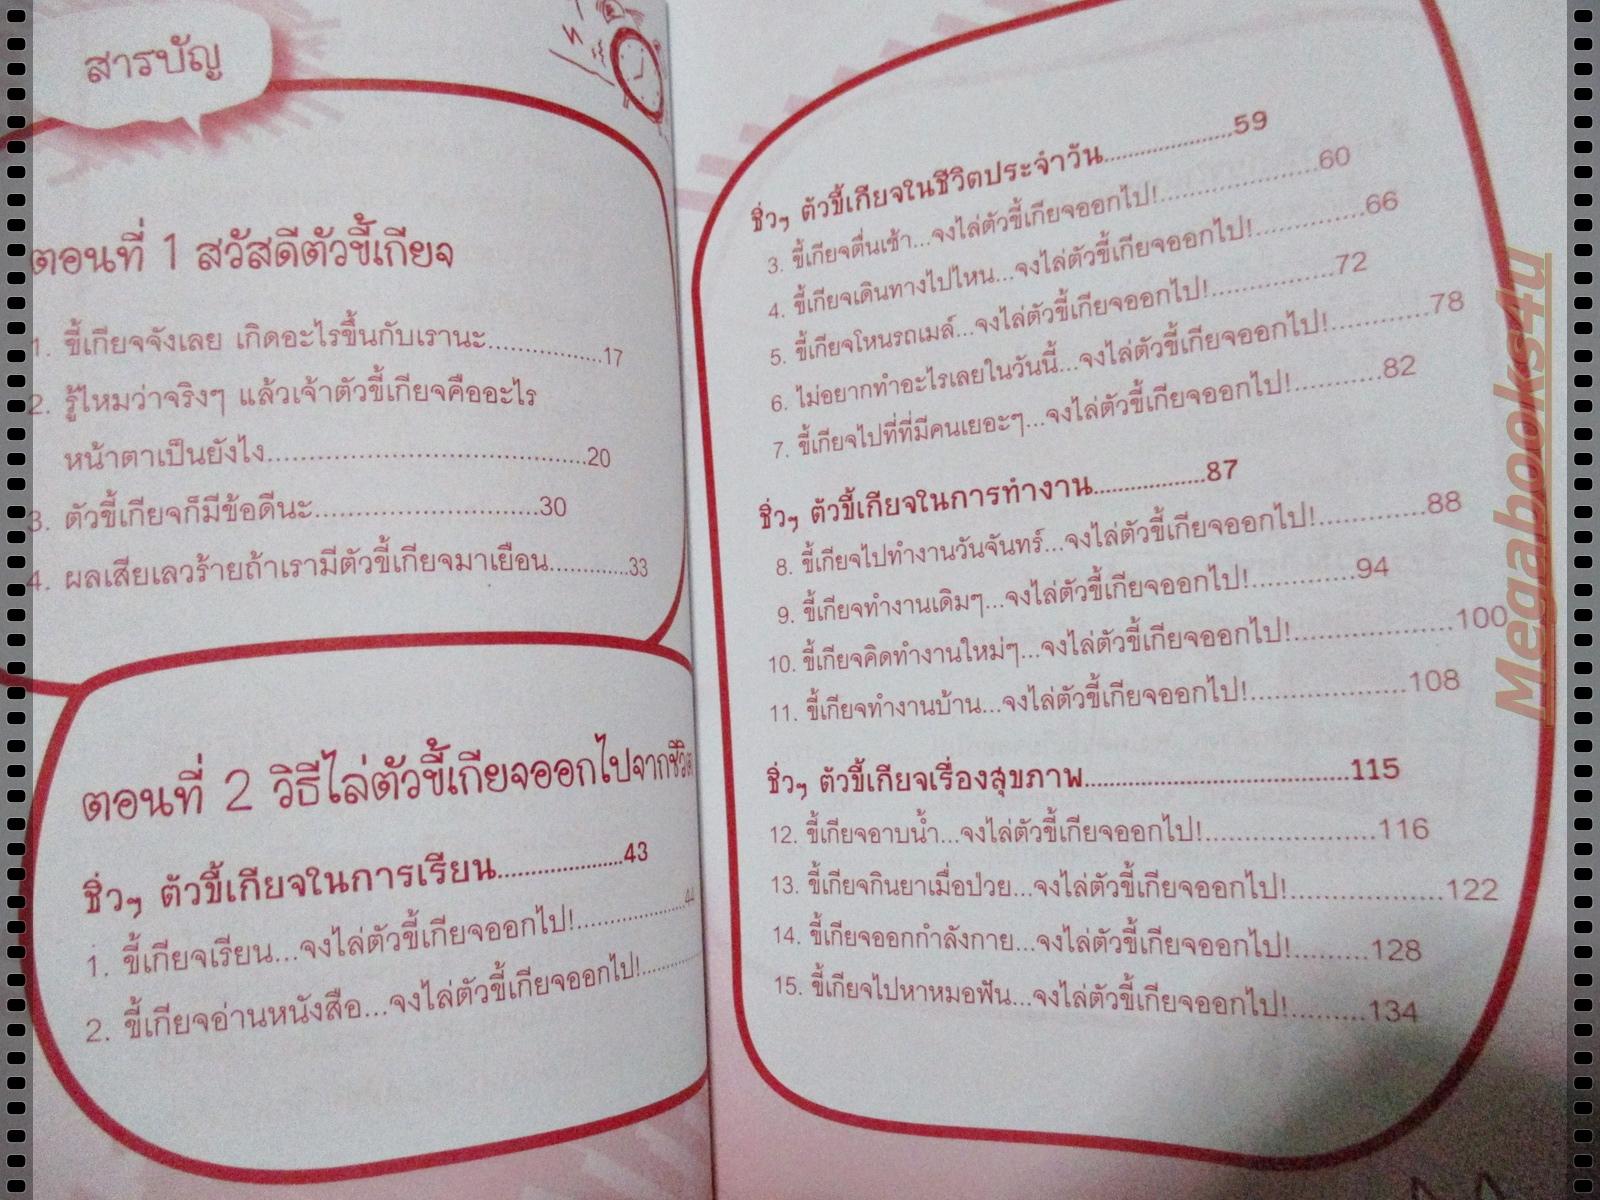 สารบัญ
ตอนที่ 1 สวัสดีตัวขี้เกียจ
1. ขี้เกียจจังเลย เกิดอะไรขึ้นกับเรานะ................17
2. รู้ไหมว่าจริงๆ แล้วเจ้าตัวขี้เกียจคืออะไร
หน้าตาเป็นยังไง......................................20
3. ตัวขี้เกียจก็มีข้อดีนะ...........................30
4. ผลเสียเลวร้ายถ้าเรามีตัวขี้เกียจมาเยือน............33
ตอนที่ 2 วิธีไล่ตัวขี้เกียจออกไปจากชีวิต
ชิ่วๆ ตัวขี้เกียจในการเรียน..................43
1. ขี้เกียจเรียน...จงไล่ตัวขี้เกียจออกไป!..................44
2. ขี้เกียจอ่านหนังสือ...จงไล่ตัวขี้เกียจออกไป!............
ชิ่วๆ ตัวขี้เกียจในชีวิตประจำวัน..................59
3. ขี้เกียจตื่นเช้า...จงไล่ตัวขี้เกียจออกไป!..................60
4. ขี้เกียจเดินทางไปไหน...จงไล่ตัวขี้เกียจออกไป!............66
5. ขี้เกียจโหนรถเมล์...จงไล่ตัวขี้เกียจออกไป!..............72
6. ไม่อยากทำอะไรเลยในวันนี้...จงไล่ตัวขี้เกียจออกไป!............78
7. ขี้เกียจไปที่ที่มีคนเยอะๆ...จงไล่ตัวขี้เกียจออกไป!..........82
ชิ่วๆ ตัวขี้เกียจในการทำงาน..................87
8. ขี้เกียจไปทำงานวันจันทร์...จงไล่ตัวขี้เกียจออกไป!.............88
9. ขี้เกียจทำงานเดิมๆ...จงไล่ตัวขี้เกียจออกไป!............94
10. ขี้เกียจคิดทำงานใหม่ๆ...จงไล่ตัวขี้เกียจออกไป!...................100
11. ขี้เกียจทำงานบ้าน...จงไล่ตัวขี้เกียจออกไป!..................108
ชิ่วๆ ตัวขี้เกียจเรื่องสุขภาพ......................................115
12. ขี้เกียจอาบน้ำ...จงไล่ตัวขี้เกียจออกไป!....................116
13. ขี้เกียจกินยาเมื่อป่วย...จงไล่ตัวขี้เกียจออกไป!..................122
14. ขี้เกียจออกกำลังกาย...จงไล่ตัวขี้เกียจออกไป!.........128
15. ขี้เกียจไปหาหมอฟัน...จงไล่ตัวขี้เกียจออกไป!.........134
Megabooks4u